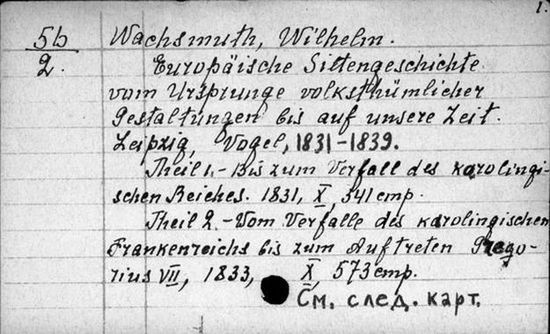 1.
5b Wachsmuth, Wilhelm.
2. Europäische Sittengeschichte
vom Ursprunge volksthümlicher
Gestaltungen bis auf unsere Zeit.
Leipzig, Vogel, 1831-1839.
Theil 1.-Bis zum Verfall des karolingi-
schen Reiches. 1831, X, 541 стр.
Theil 2.-Vom Verfalle des karolingischen
Frankenreichs bis zum Auftreten Grego-
rius VII, 1833, X, 573 стр.
См. след. карт.